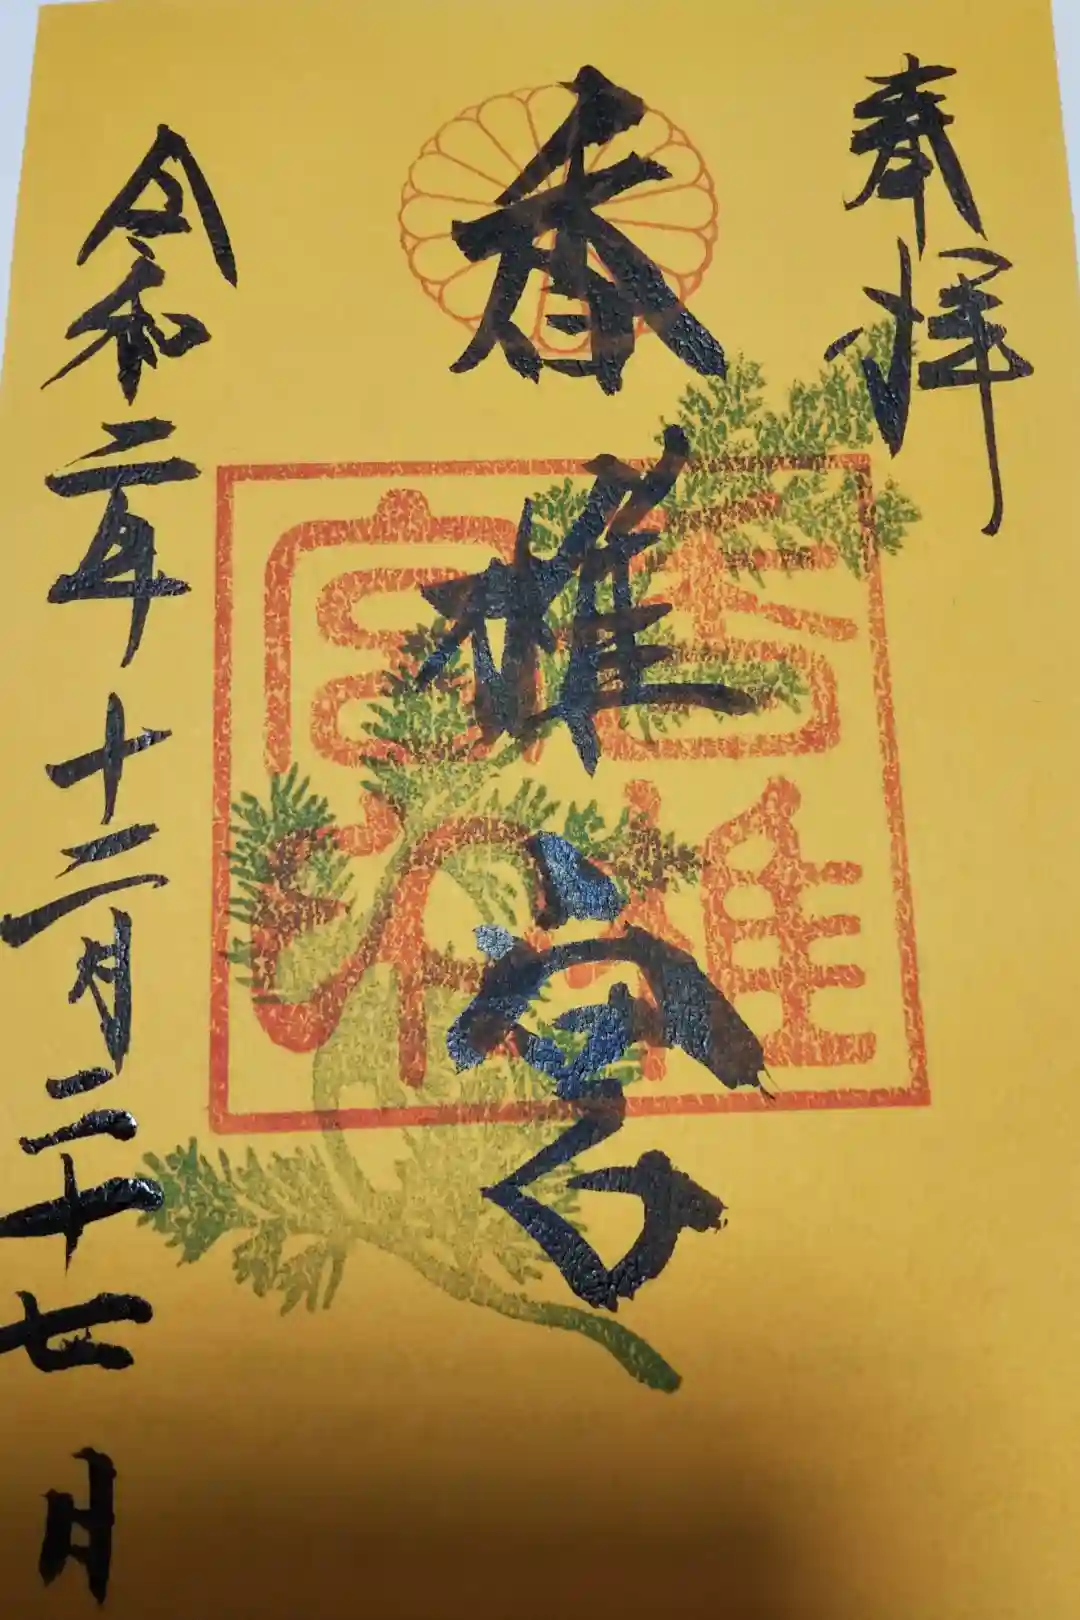 奉拝
香椎宮
香椎宮印
令和二年十二月二十七日